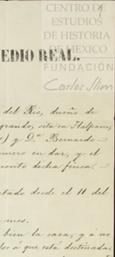 CENTRO DE
ESTUDIOS
DE HISTORIA
DE MEXICO
FUNDACIÓN
Carlos Slim
EDIO REAL.
del Rio, dueño de
grande, sita en Tlalpam,
) y Dn. Bernardo
mero en dar, y el
fecha
bado desde el 11 del
mes.
bien la casa, y á no
los á que está destinada.